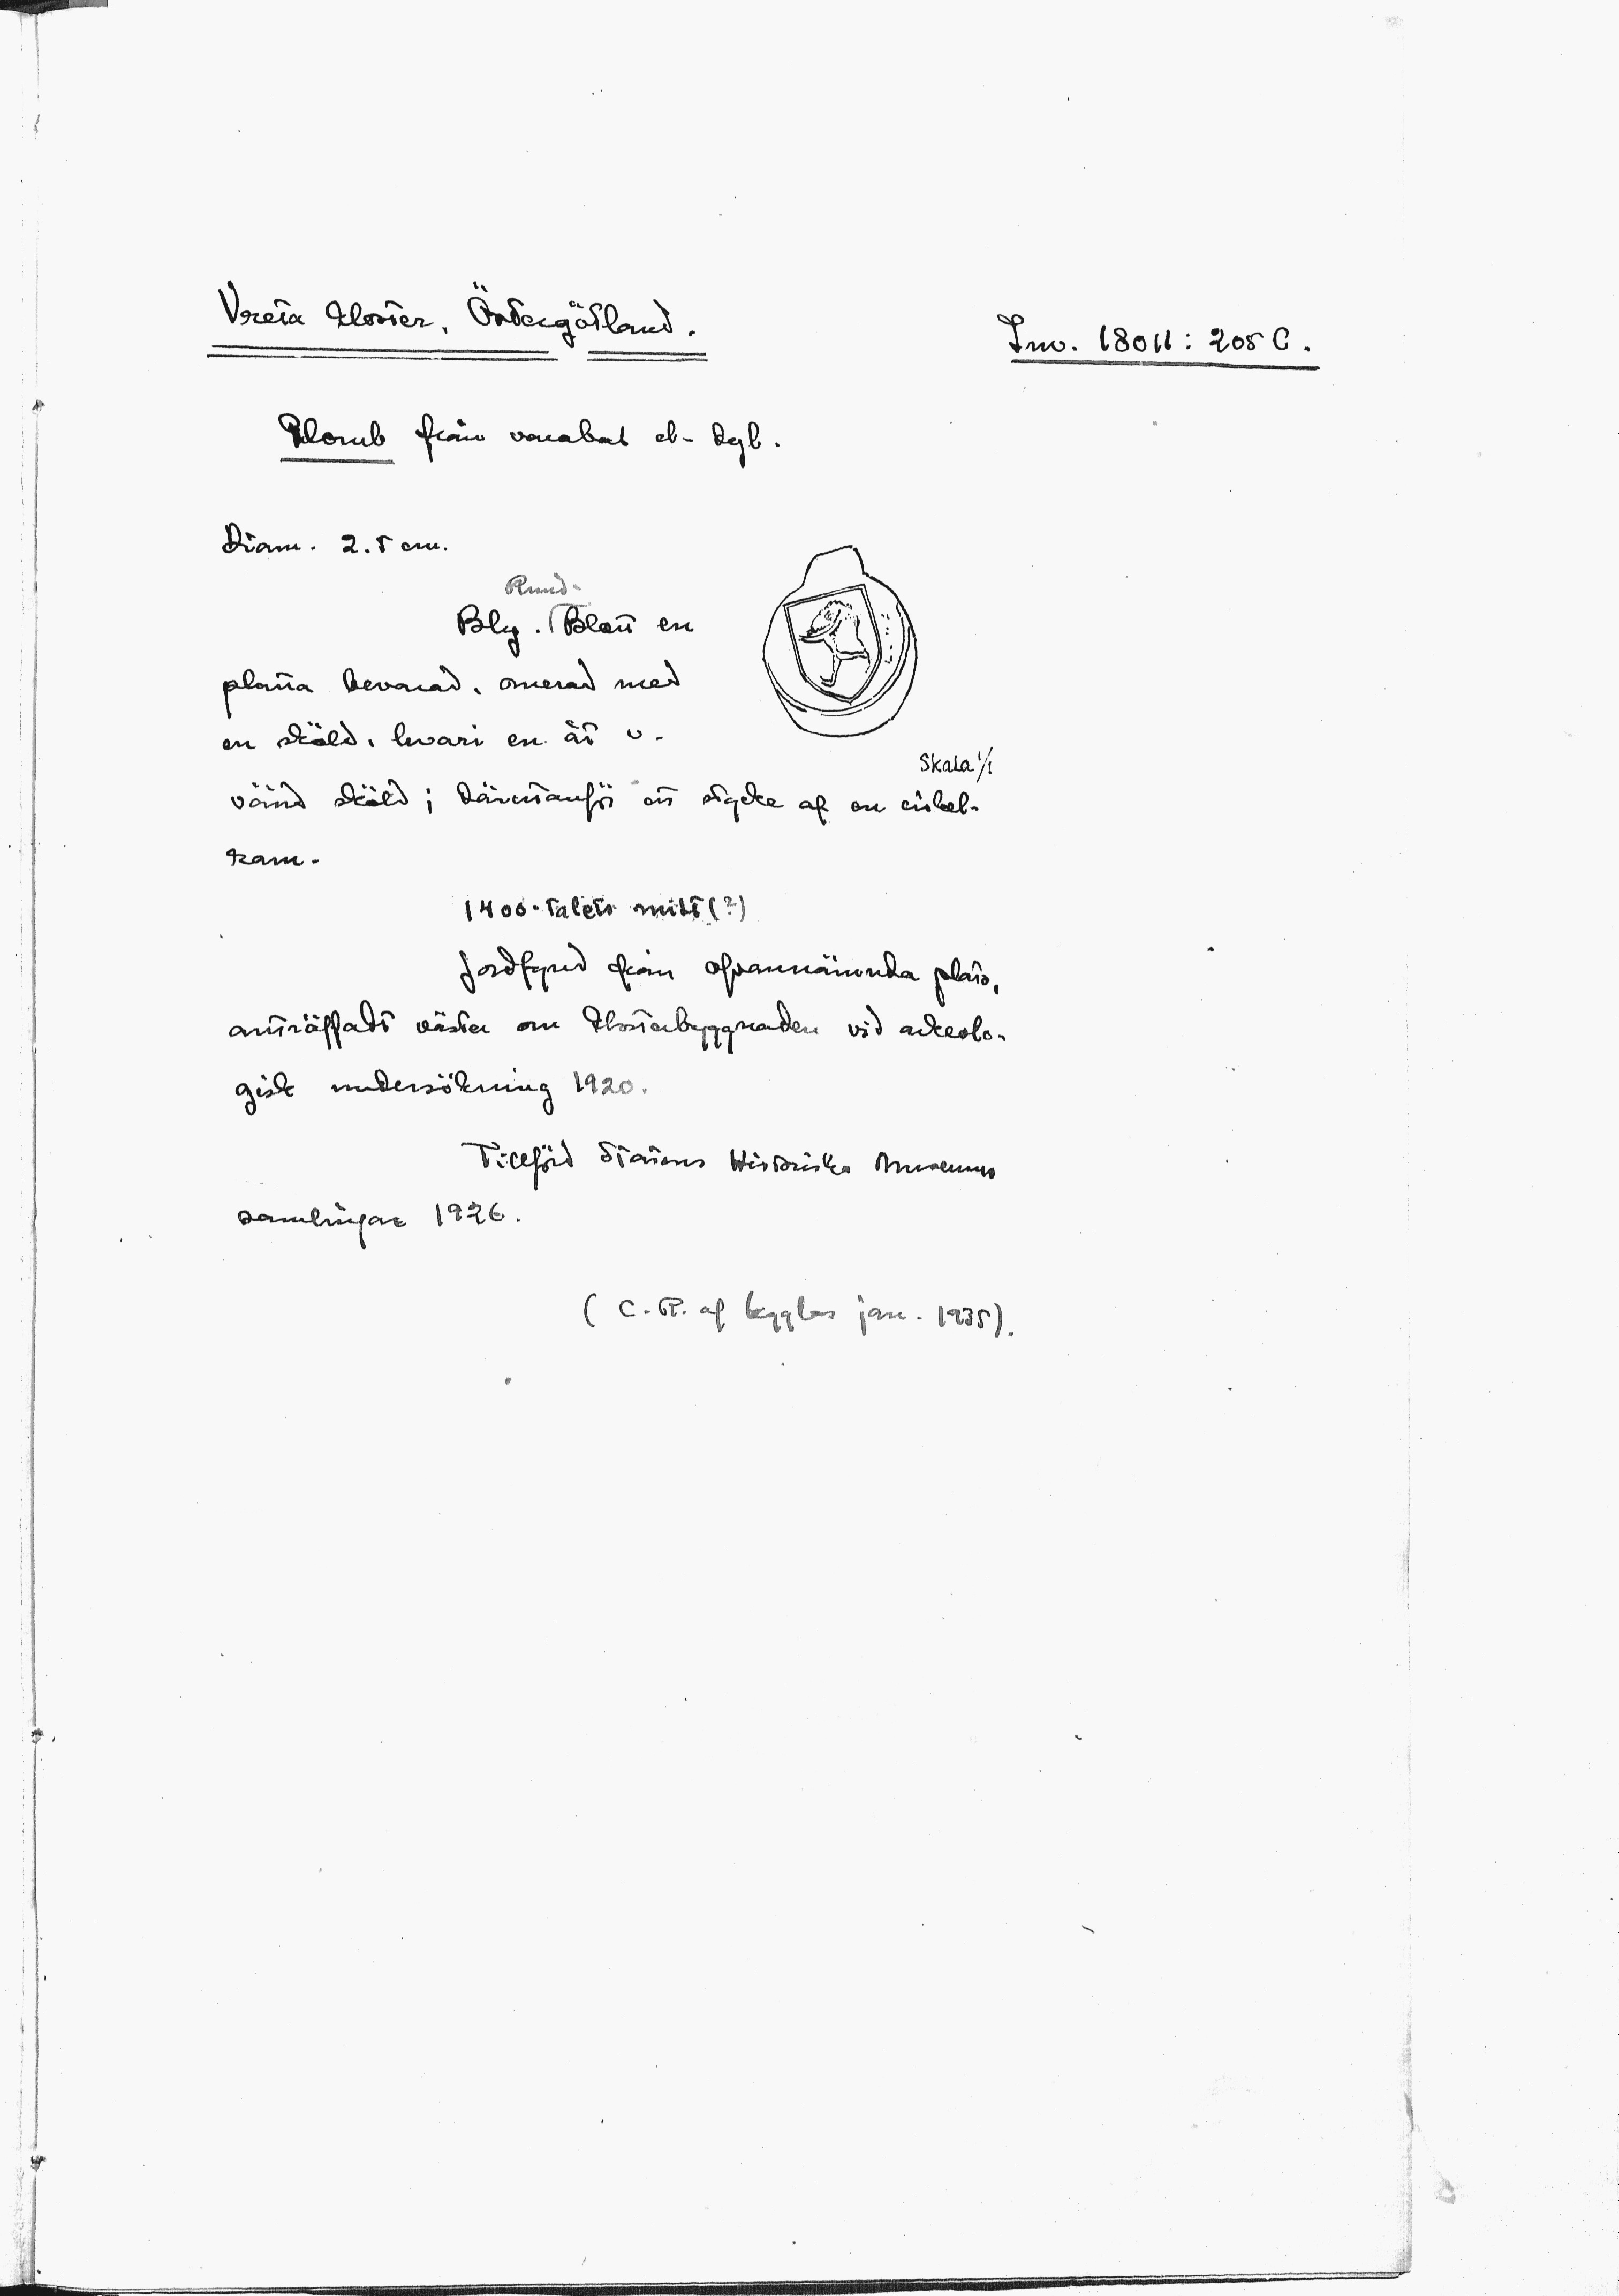 Vreta kloster, Östergötland.
Inv. 18011: 205 C.
Plomb från varabal el- dyl.
Diam. 2.5 cm.
Rund.
Bly. Blott en
platta bevarad, smerad med
en sköld, hvari en åt v.
vänd sköld; därutanför ett stycke af en cirkel-
ram.
Skala 1/1
1400-talets mitt(?)
Jordfynd från ofvannämnda plats,
anträffadt väster om klosterbyggnaden vid arkeolo-
gisk undersökning 1920.
Tillförd Statens Historiska Museums
samlingar 1926.
( C. R. af Ugglas jan. 1935).